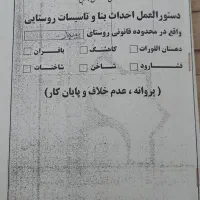 دستورالعمل احداث بنا و تاسیسات روستایی
واقع در محدوده قانونی روستای
دهستان القورات کاهشنگ باقران
فشارود شاخن شاخنات
( پروانه ، عدم خلاف و پایان کار)